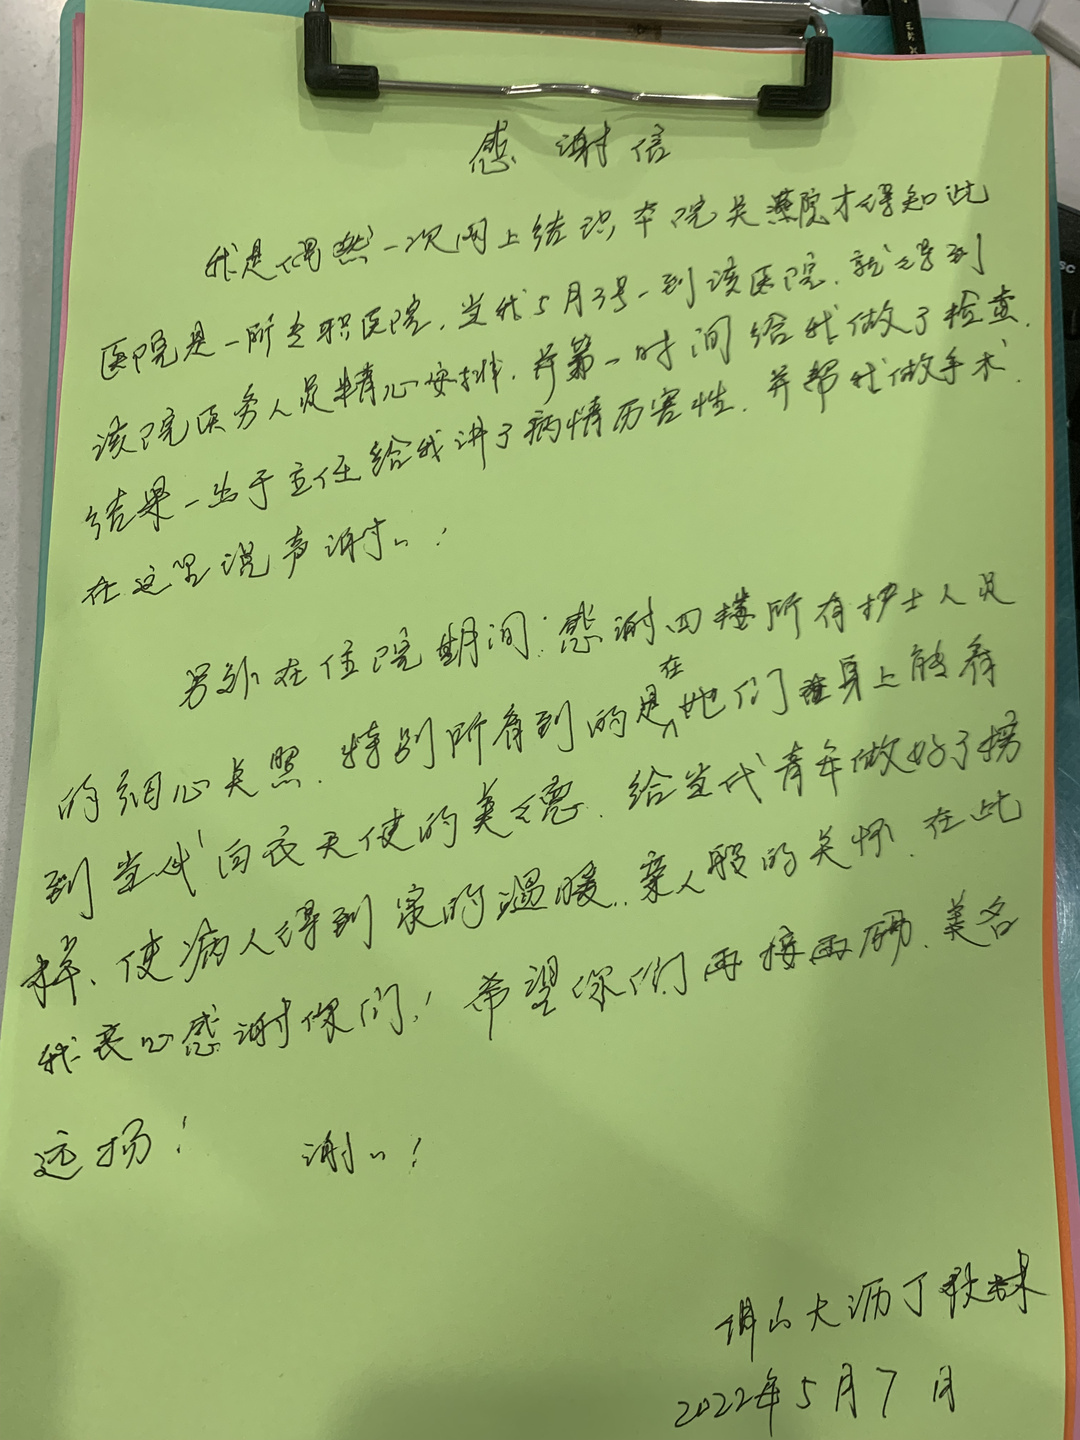 感谢信
我是偶然一次网上结识本院吴燕院才得知此
医院是一所专职医院，当我5月3号一到该医院，就得到
该院医务人员精心安排，并第一时间给我做了检查，
结果一出于主任给我讲了病情厉害性，并帮我做手术，
在这里说声谢〃！
另外在住院期间：感谢四楼所有护士人员
的细心关照，特别所看到的是在她们身上能看
到当代白衣天使的美德，给当代青年做好了榜
样、使病人得到家的温暖，亲人般的关怀，在此
我衷心感谢你们！希望你们再接再励、美名
远扬！ 谢〃！
佛山大沥丁
2022年5月7日